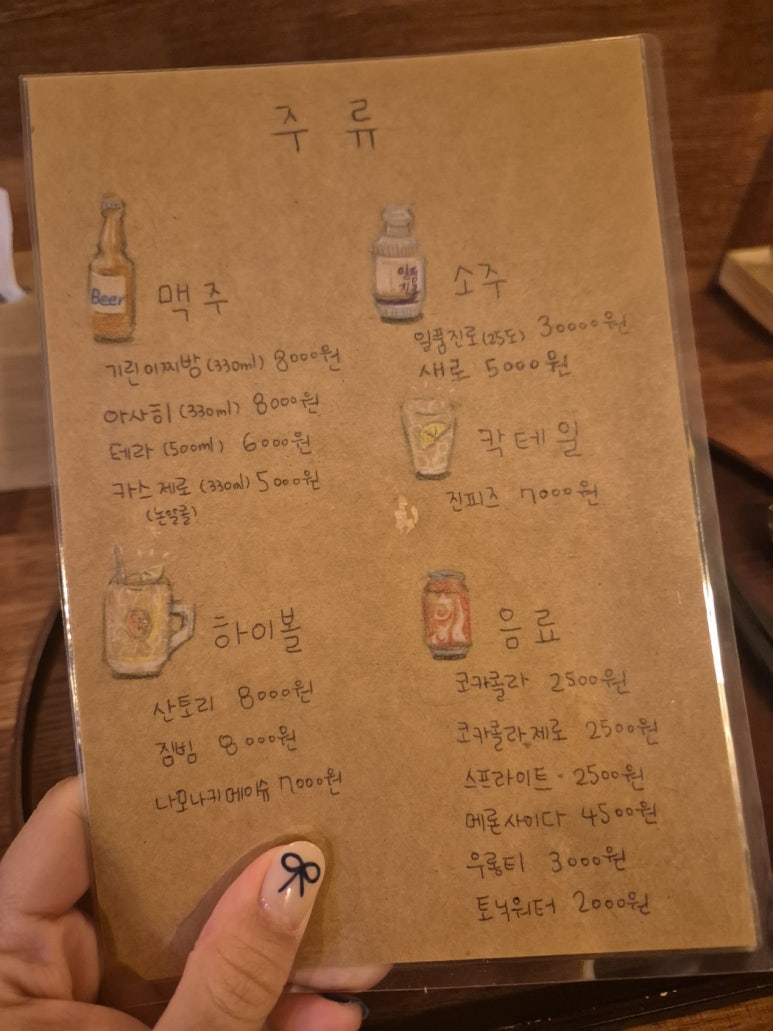 주류
Beer
맥주
기린이찌방 (330ml) 8000원
아사히 (330ml) 8000원
테라 (500ml) 6000원
카스제로 (330ml) 5000원
(논알콜)
일품
진로
소주
일품진로 (25도) 30000원
새로 5000원
칵테일
진피즈 7000원
하이볼
산토리 8000원
짐빔 8000원
나모나키메이슈 7000원
음료
코카콜라 2500원
코카콜라제로 2500원
스프라이트 2500원
메론사이다 4500원
우롱티 3000원
토닉워터 2000원